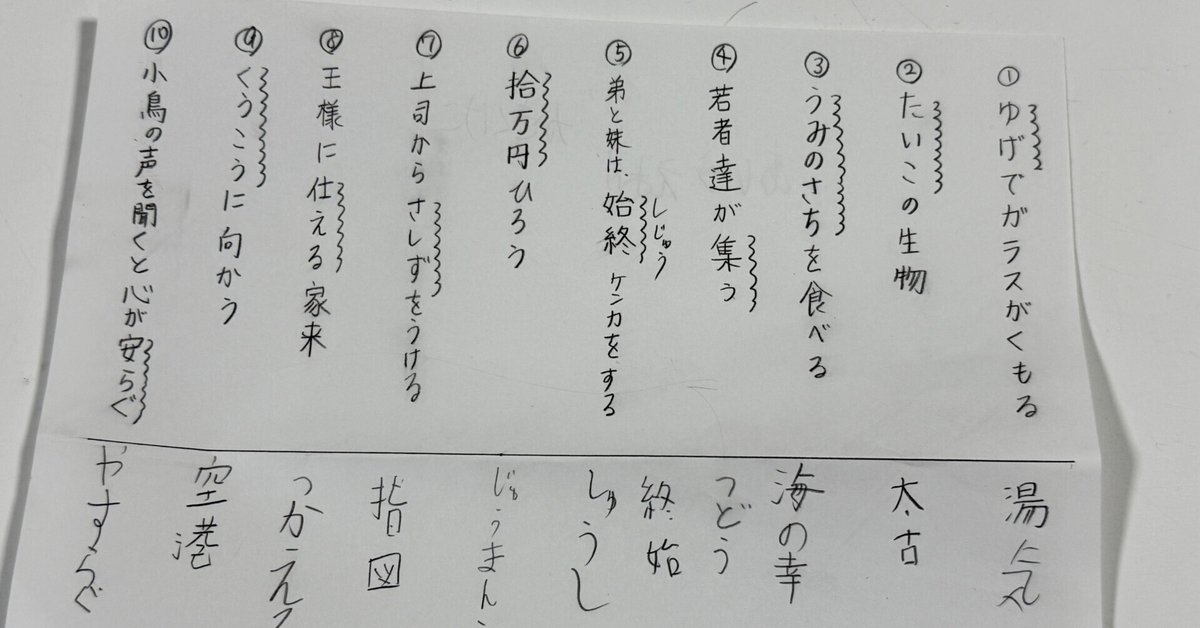 ①ゆげでガラスがくもる
②たいこの生物
③うみのさちを食べる
④若者達が集う
⑤弟と妹は、始終、ケンカをする
しじゅう
⑥拾万円ひろう
⑦上司からさしずをうける
⑧王様に仕える家来
⑨くうこうに向かう
⑩小鳥の声を聞くと心が安らぐ
湯気
太古
海の幸
つどう
終始
しゅうし
じゅうまん
指図
つかえる
空港
やすらぐ